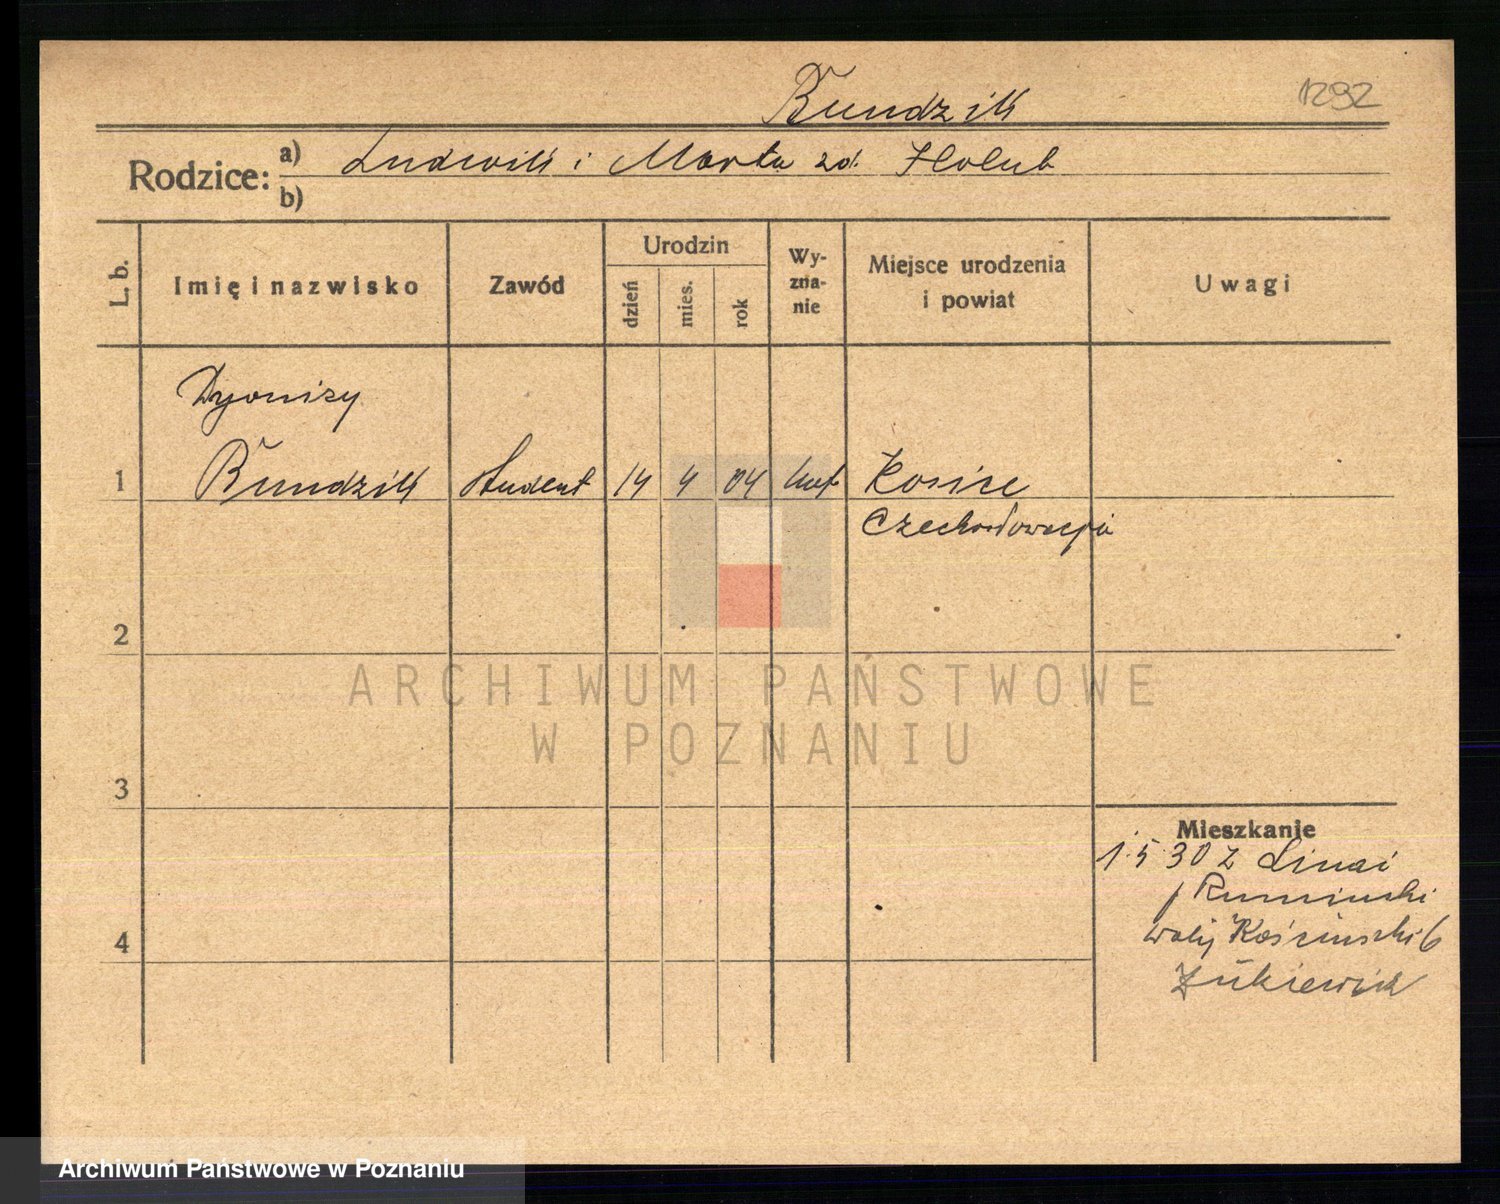 Bundzik
1292
Rodzice: a) Ludwik i Marta zd. Holub
b)
L. b.
Imię i nazwisko
Zawód
Urodzin
dzień
mies.
rok
Wy-
zna-
nie
Miejsce urodzenia
i powiat
Uwagi
Dyonizy
1 Bundzik student 14 4 04 kat Kosice
Czechosłowacja
2
3
4
Mieszkanie
1.5.30 z
Wały 6
ARCHIWUM PAŃSTWOWE
W POZNANIU
Archiwum Państwowe w Poznaniu